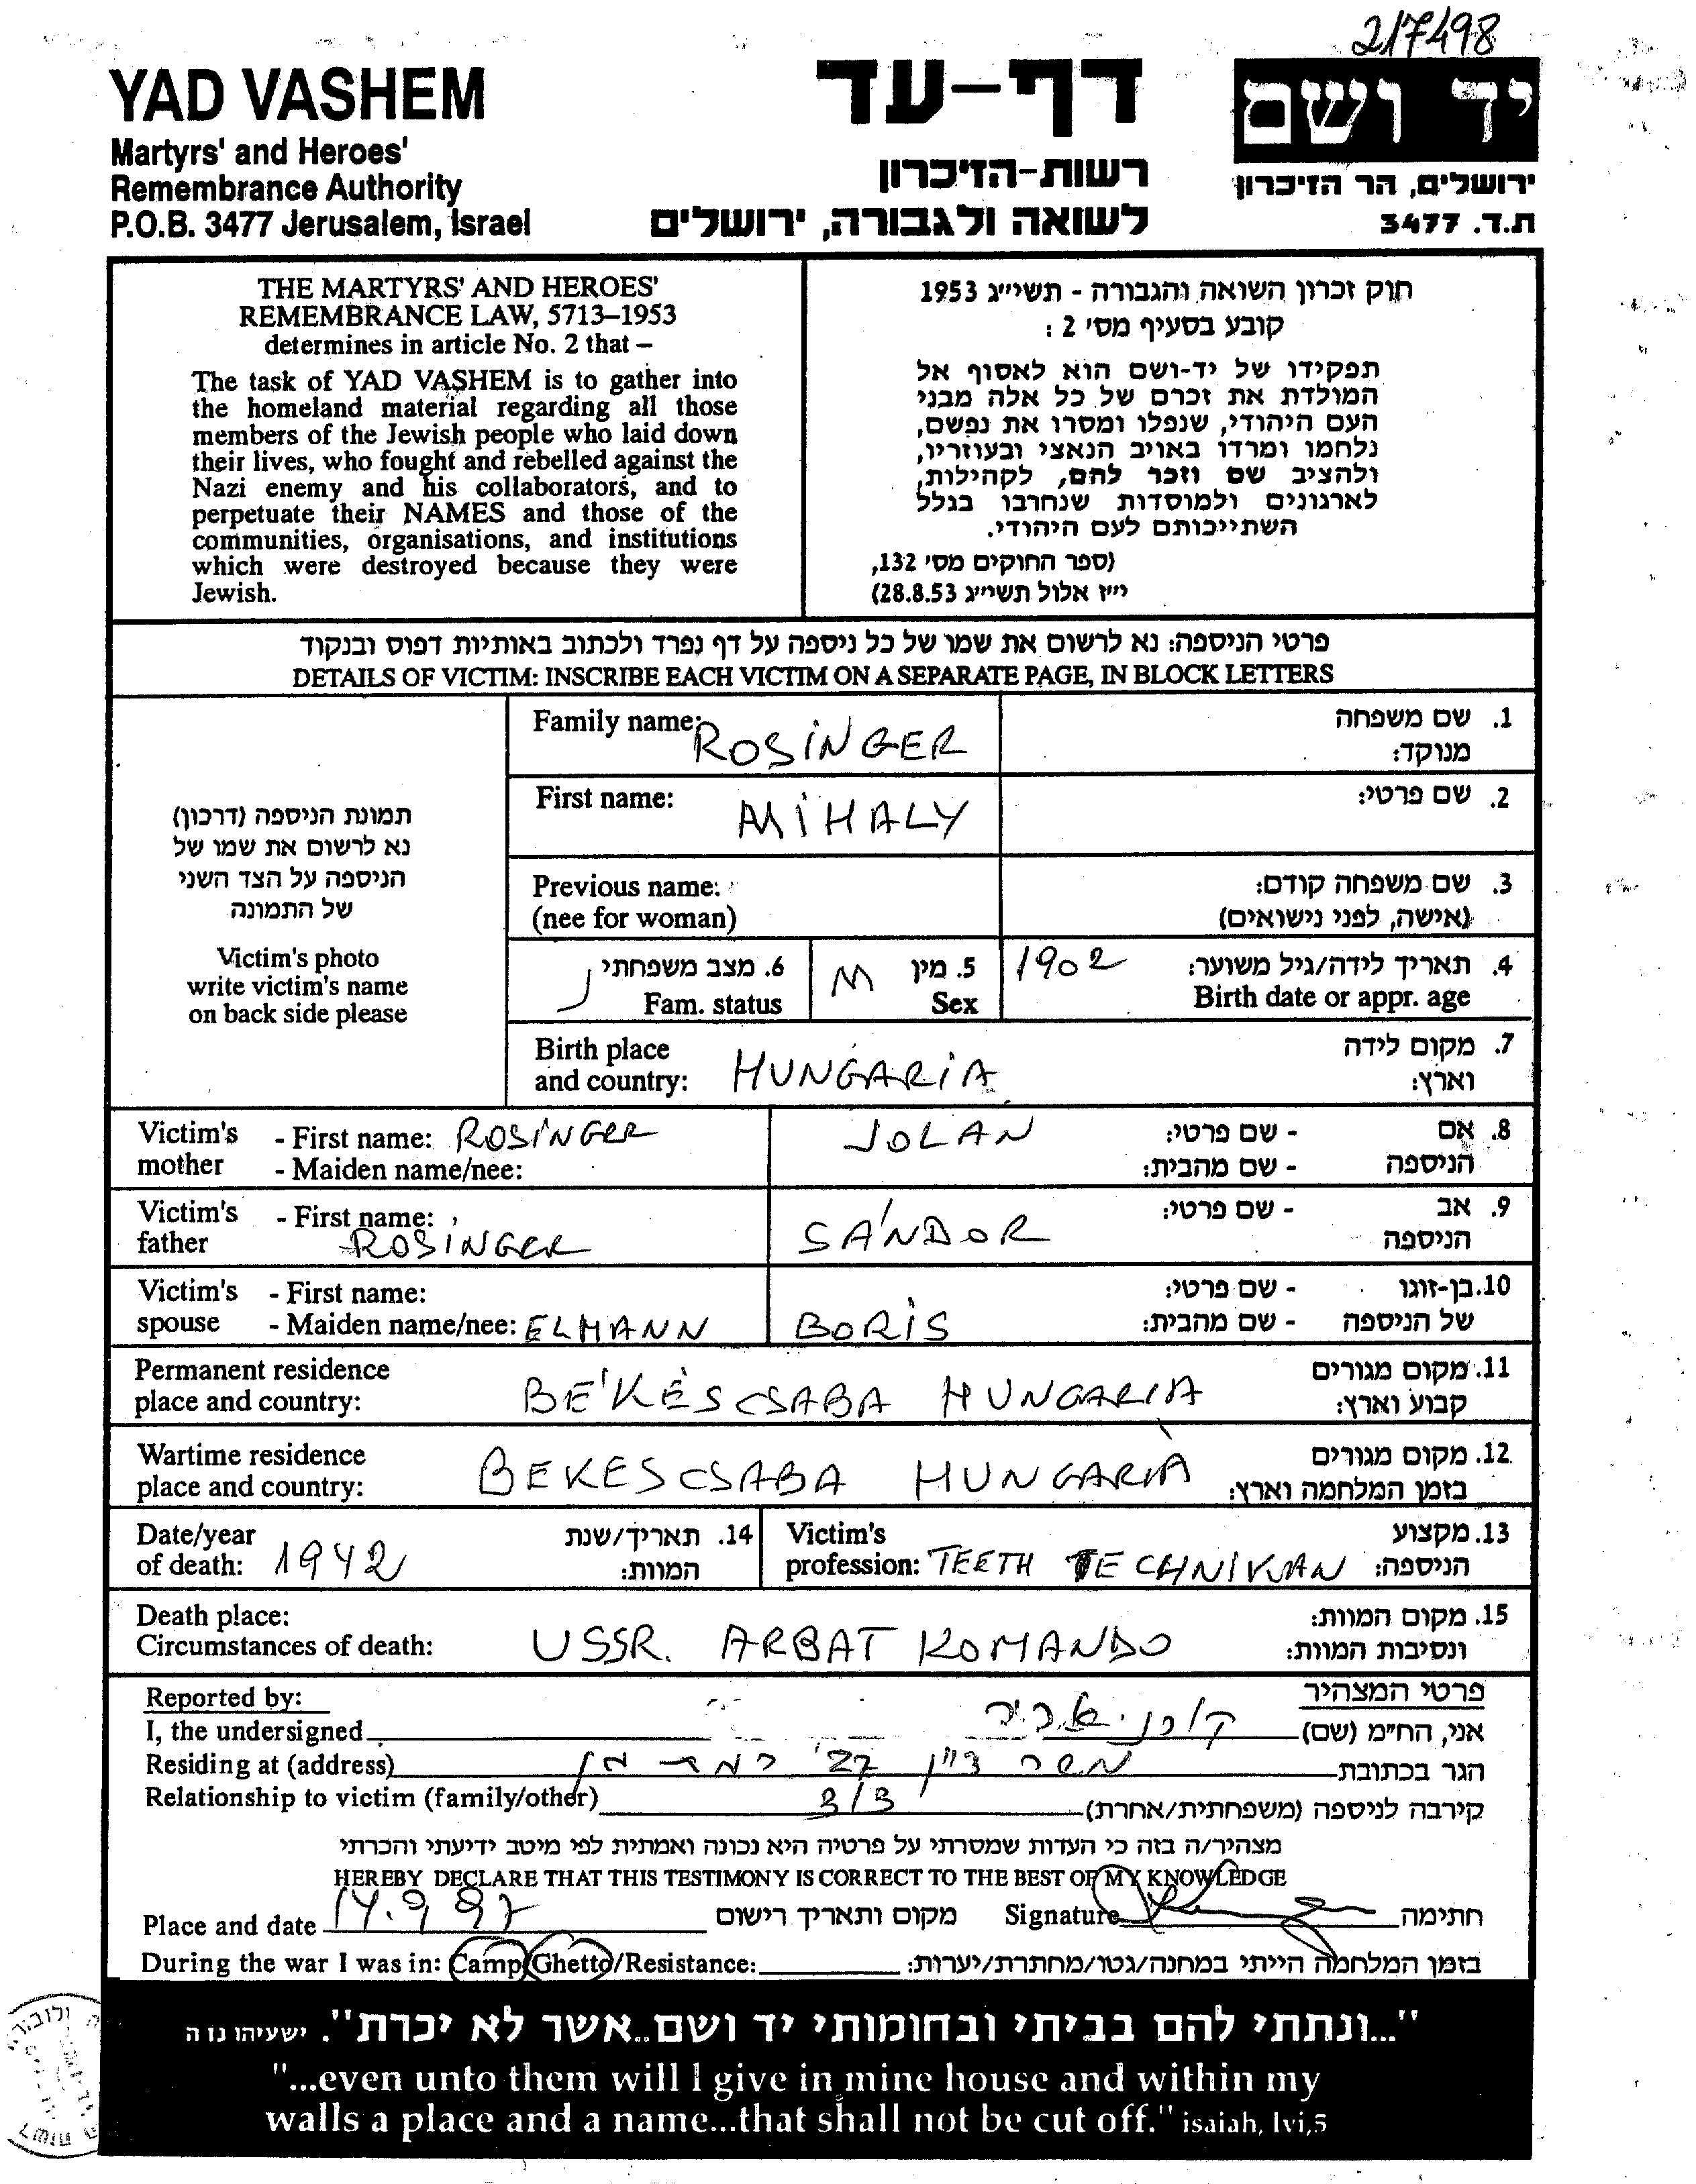 217498
YAD VASHEM
Martyrs' and Heroes'
Remembrance Authority
P.O.B. 3477 Jerusalem, Israel
דף-עד
רשות-הזיכרון
לשואה ולגבורה, ירושלים
יד ושם
ירושלים, הר הזיכרון
ת.ד. 3477
THE MARTYRS' AND HEROES'
REMEMBRANCE LAW, 5713–1953
determines in article No. 2 that –
The task of YAD VASHEM is to gather into
the homeland material regarding all those
members of the Jewish people who laid down
their lives, who fought and rebelled against the
Nazi enemy and his collaborators, and to
perpetuate their NAMES and those of the
communities, organisations, and institutions
which were destroyed because they were
Jewish.
חוק זכרון השואה והגבורה - תשי״ג 1953
קובע בסעיף מס׳ 2 :
תפקידו של יד-ושם הוא לאסוף אל
המולדת את זכרם של כל אלה מבני
העם היהודי, שנפלו ומסרו את נפשם,
נלחמו ומרדו באויב הנאצי ובעוזריו,
ולהציב שם וזכר להם, לקהילות,
לארגונים ולמוסדות שנחרבו בגלל
השתייכותם לעם היהודי.
(ספר החוקים מס׳ 132,
י״ז אלול תשי״ג 28.8.53)
פרטי הניספה: נא לרשום את שמו של כל ניספה על דף נפרד ולכתוב באותיות דפוס ובנקוד
DETAILS OF VICTIM: INSCRIBE EACH VICTIM ON A SEPARATE PAGE, IN BLOCK LETTERS
תמונת הניספה (דרכון)
נא לרשום את שמו של
הניספה על הצד השני
של התמונה
Victim's photo
write victim's name
on back side please
Family name: ROSINGER 1. שם משפחה
מנוקד:
First name: MIHALY 2. שם פרטי:
Previous name: 3. שם משפחה קודם:
(nee for woman) (אישה, לפני נישואים)
6. מצב משפחתי 5. מין M 1902 4. תאריך לידה/גיל משוער:
Fam. status Sex Birth date or appr. age
Birth place 7. מקום לידה
and country: HUNGARIA וארץ:
Victim's - First name: ROSINGER JOLAN - שם פרטי: 8. אם
mother - Maiden name/nee: - שם מהבית: הניספה
Victim's - First name: - שם פרטי: 9. אב
father ROSINGER SÁNDOR הניספה
Victim's - First name: - שם פרטי: 10. בן-זוגו
spouse - Maiden name/nee: ELMANN BORIS - שם מהבית: של הניספה
Permanent residence 11. מקום מגורים
place and country: BÉKÉSCSABA HUNGARIA קבוע וארץ:
Wartime residence 12. מקום מגורים
place and country: BEKESCSABA HUNGARIA בזמן המלחמה וארץ:
Date/year 14. תאריך/שנת Victim's 13. מקצוע
of death: 1942 המוות: profession: TEETH TECHNIKAN הניספה:
Death place: 15. מקום המוות:
Circumstances of death: USSR. ARBAT KOMANDO ונסיבות המוות:
Reported by: פרטי המצהיר
I, the undersigned אני, החי״מ (שם)
Residing at (address) 27 רמת גן הגר בכתובת
Relationship to victim (family/other) קירבה לניספה (משפחתית/אחרת)
מצהיר/ה בזה כי העדות שמסרתי על פרטיה היא נכונה ואמתית לפי מיטב ידיעתי והכרתי
HEREBY DECLARE THAT THIS TESTIMONY IS CORRECT TO THE BEST OF MY KNOWLEDGE
Place and date 14.9 97 מקום ותאריך רישום Signature חתימה
During the war I was in: Camp/Ghetto/Resistance: בזמן המלחמה הייתי במחנה/גטו/מחתרת/יערות:
"...ונתתי להם בביתי ובחומותי יד ושם..אשר לא יכרת". ישעיהו נו ה
"...even unto them will I give in mine house and within my
walls a place and a name...that shall not be cut off." isaiah, lvi,5